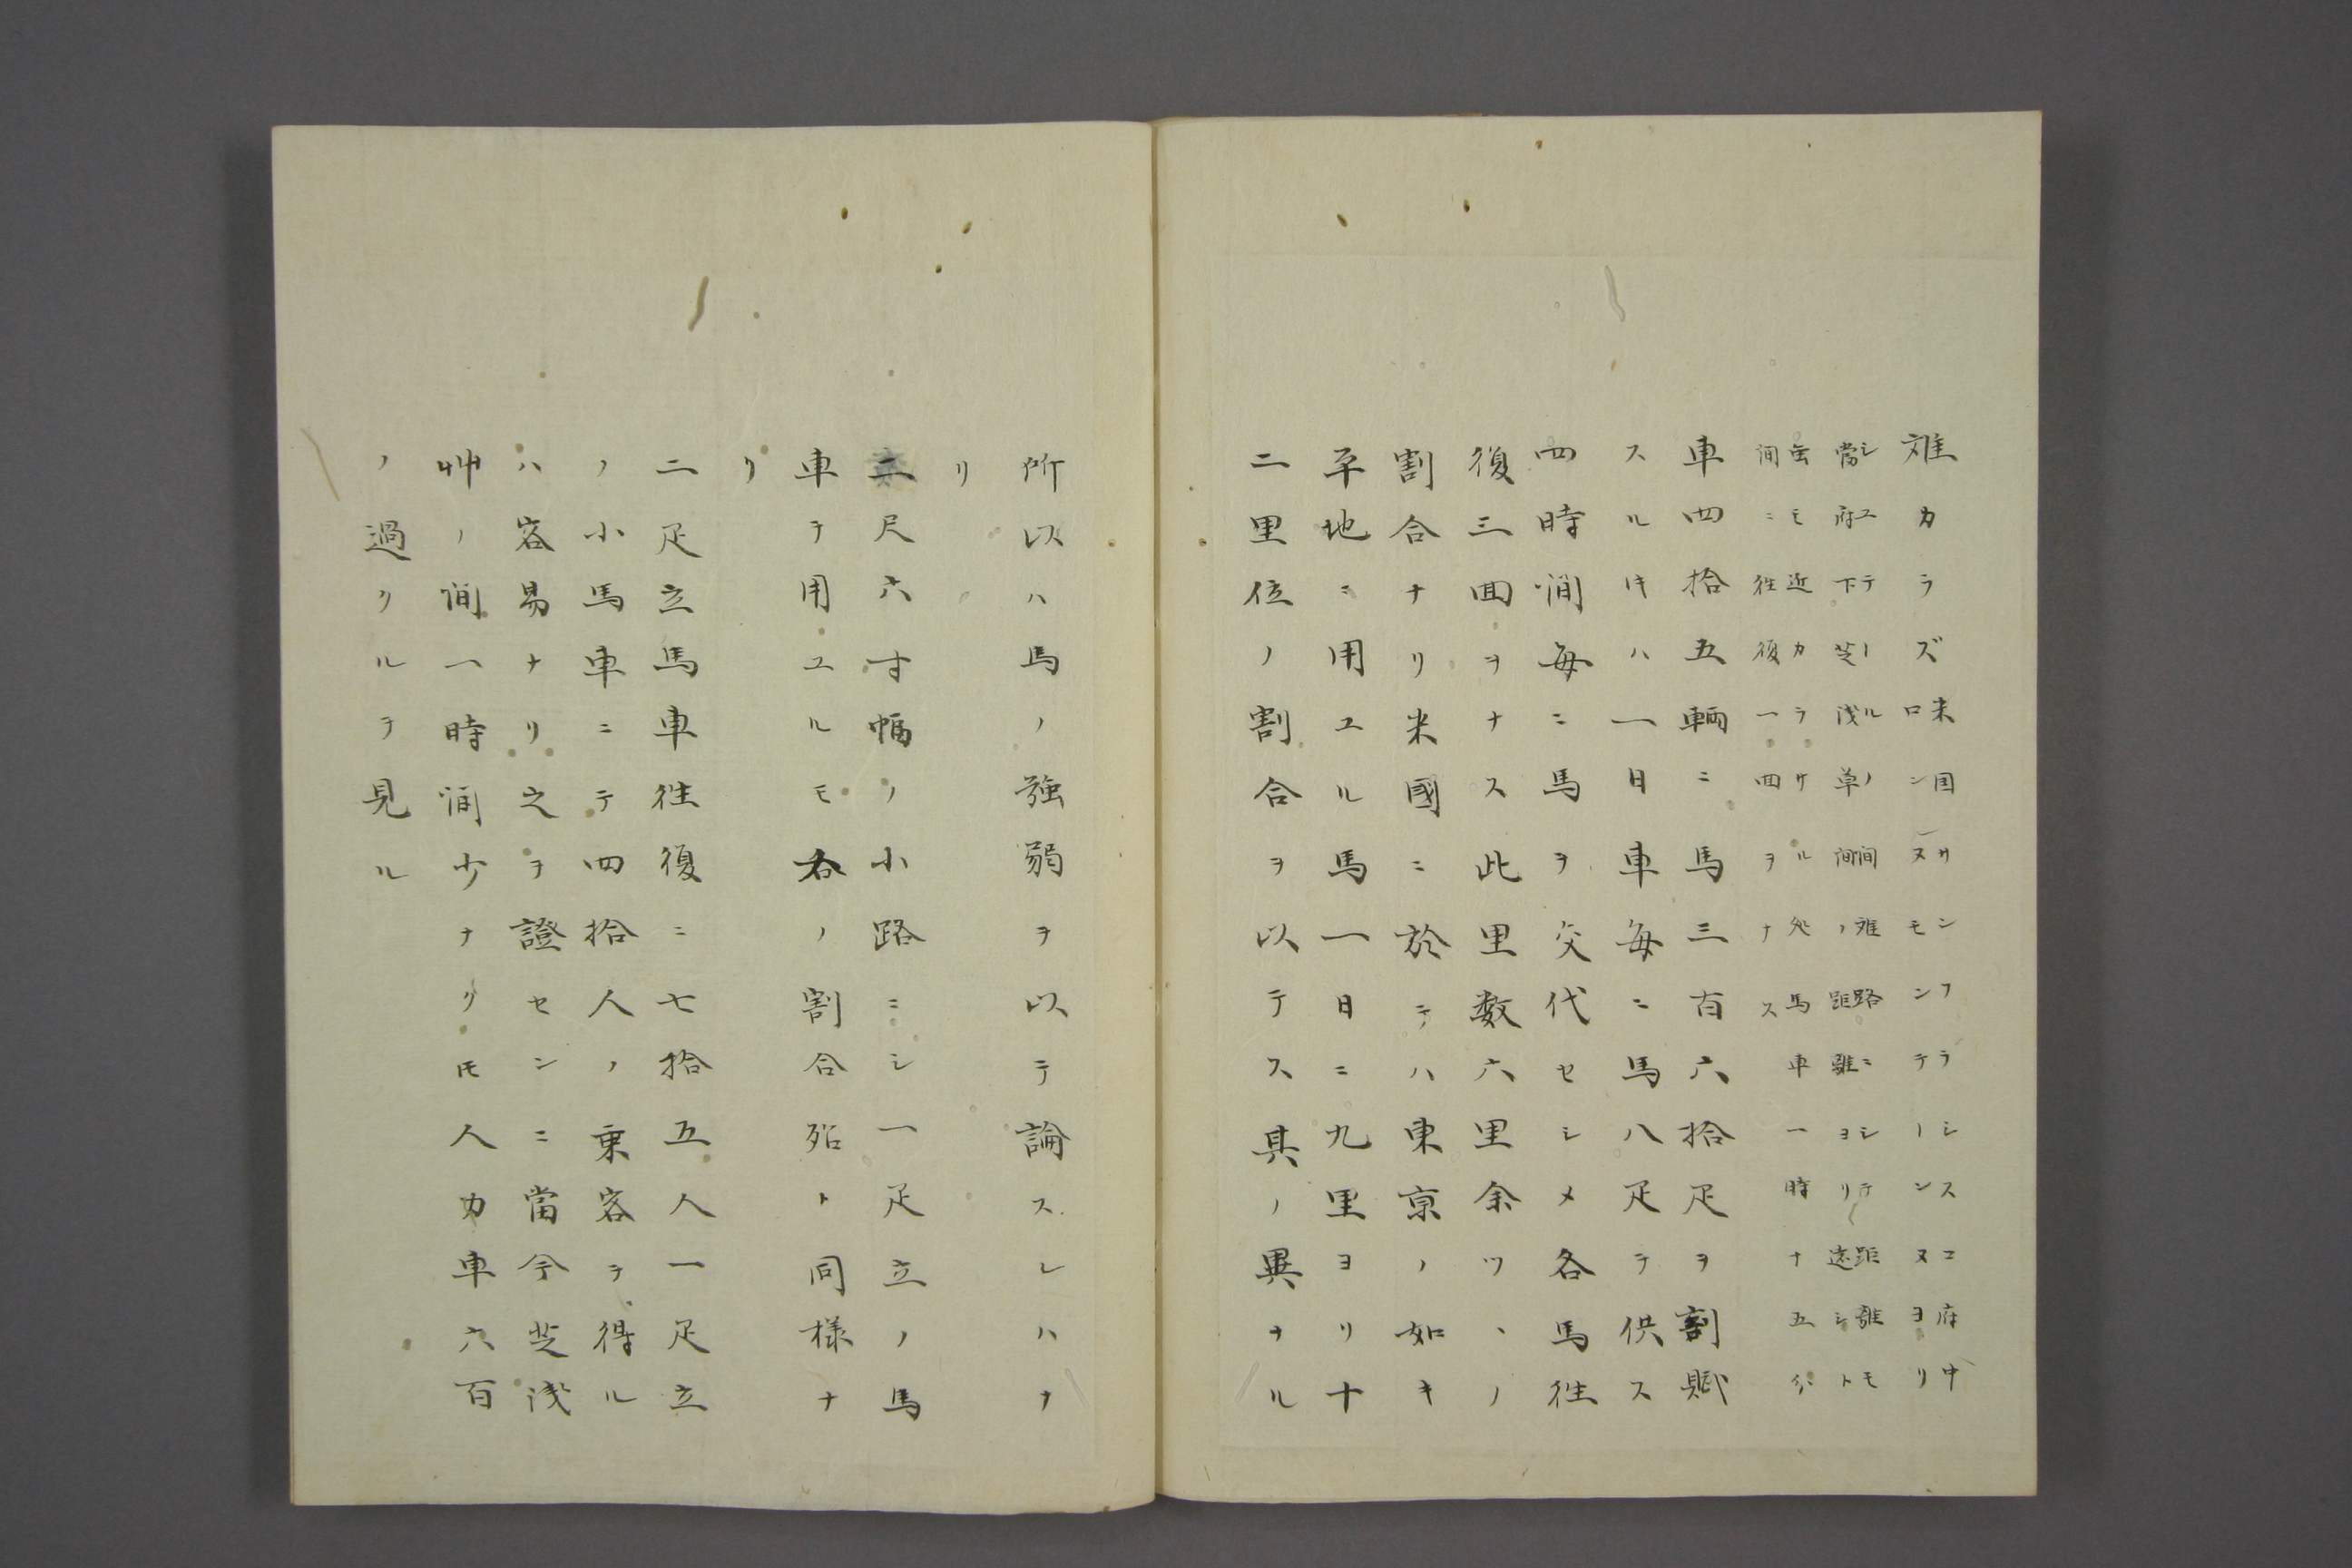 難カラズ
米国サンフラシスコ府中
ロンヌモンテーンヌヨリ
シエテールノ間難路ニシテ距離モ
當府下芝浅草間ノ距離ヨリ遠シト
雖モ近カラサル処馬車一時十五分
間ニ往復一回ヲナス
車四拾五輌ニ馬三百六拾疋ヲ割賦
スルキハ一日車毎ニ馬八疋ヲ供ス
四時間毎ニ馬ヲ交代セシメ各馬往
復三回ヲナス此里数六里余ツヽノ
割合ナリ米國ニ於テハ東京ノ如キ
平地ニ用ユル馬一日ニ九里ヨリ十
二里位ノ割合ヲ以テス其ノ異ナル
所以ハ馬ノ強弱ヲ以テ論スレハナ
リ
二尺六寸幅ノ小路ニシ一疋立ノ馬
車ヲ用ユルモ右ノ割合殆ト同様ナ
リ
二疋立馬車往復ニ七拾五人一疋立
ノ小馬車ニテ四拾人ノ乗客ヲ得ル
ハ容易ナリ之ヲ證センニ當今芝浅
艸ノ間一時間少ナク𪜈人力車六百
ノ過クルヲ見ル